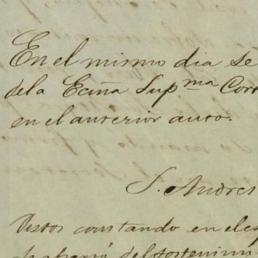 En el mismo dia se
dela Ecma Supma Cort
en el anterior auto.
S. Andres
Vistos constando en el es